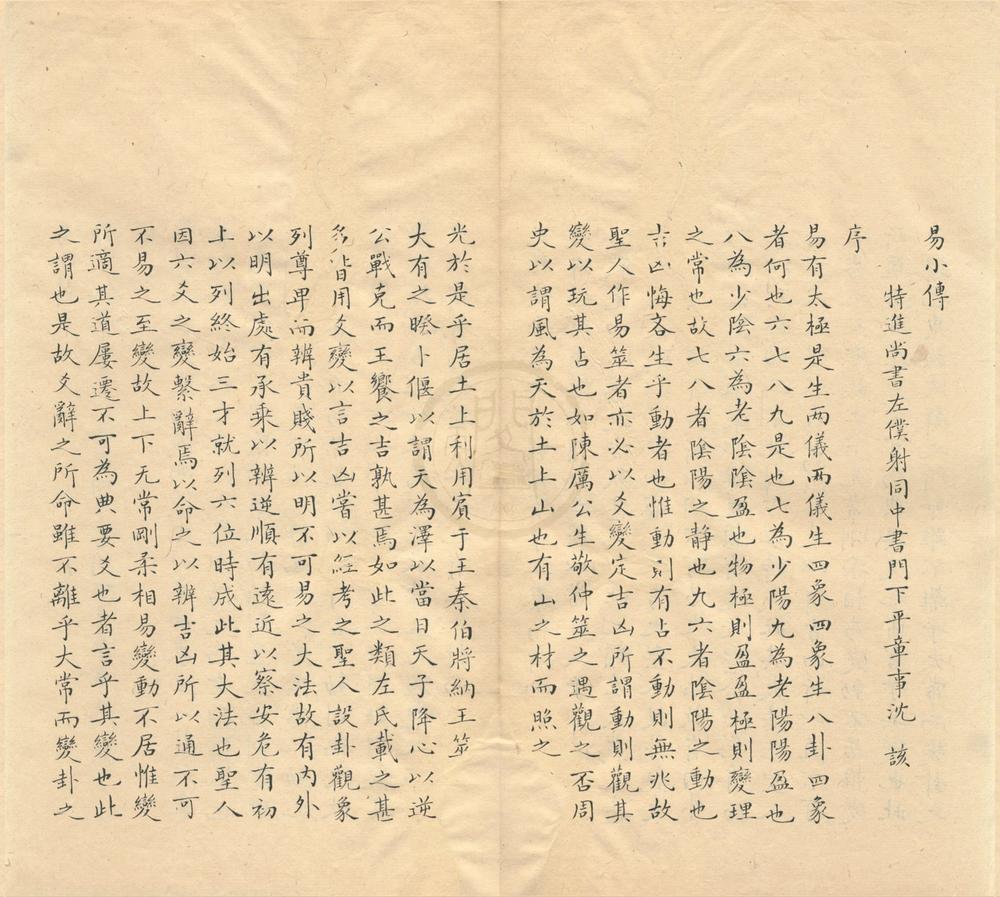 易小傳
特進尚書左僕射同中書門下平章事沈　該
序
易有太極是生两儀两儀生四象四象生八卦四象
者何也六七八九是也七為少陽九為老陽陽盈也
八為少陰六為老陰陰盈也物極則盈盈極則變理
之常也故七八者陰陽之静也九六者陰陽之動也
吉凶悔吝生乎動者也惟動則有占不動則無兆故
聖人作易筮者亦必以爻變定吉凶所謂動則觀其
變以玩其占也如陳厲公生敬仲筮之遇觀之否周
史以謂風為天於土上山也有山之材而照之
光於是乎居土上利用賓于王秦伯將納王筮
大有之睽卜偃以謂天為澤以當日天子降心以逆
公戰克而王饗之吉孰甚焉如此之類左氏載之甚
多皆用爻變以言吉凶嘗以經考之聖人設卦觀象
列尊卑而辨貴賤所以明不可易之大法故有内外
以明出處有承乘以辨逆順有遠近以察安危有初
上以列終始三才就列六位時成此其大法也聖人
因六爻之變繫辭焉以命之以辨吉凶所以通不可
不易之至變故上下无常剛柔相易變動不居惟變
所適其道屢遷不可為典要爻也者言乎其變也此
之謂也是故爻辭之所命雖不離乎大常而變卦之